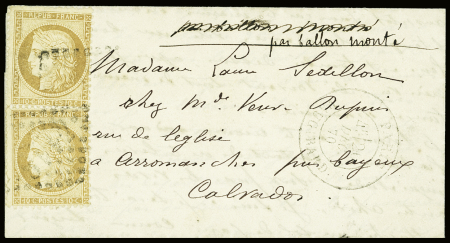 REPUB. FRANC.
10 C. POSTES 10 C.
REPUB. FRANC.
10 C. POSTES 10 C.
par ballon monté
par ballon monté
Madame Laure Sedillon
chez Mde Veuve Dupuis
rue de l'eglise
a Arromanches près bayeux
Calvados